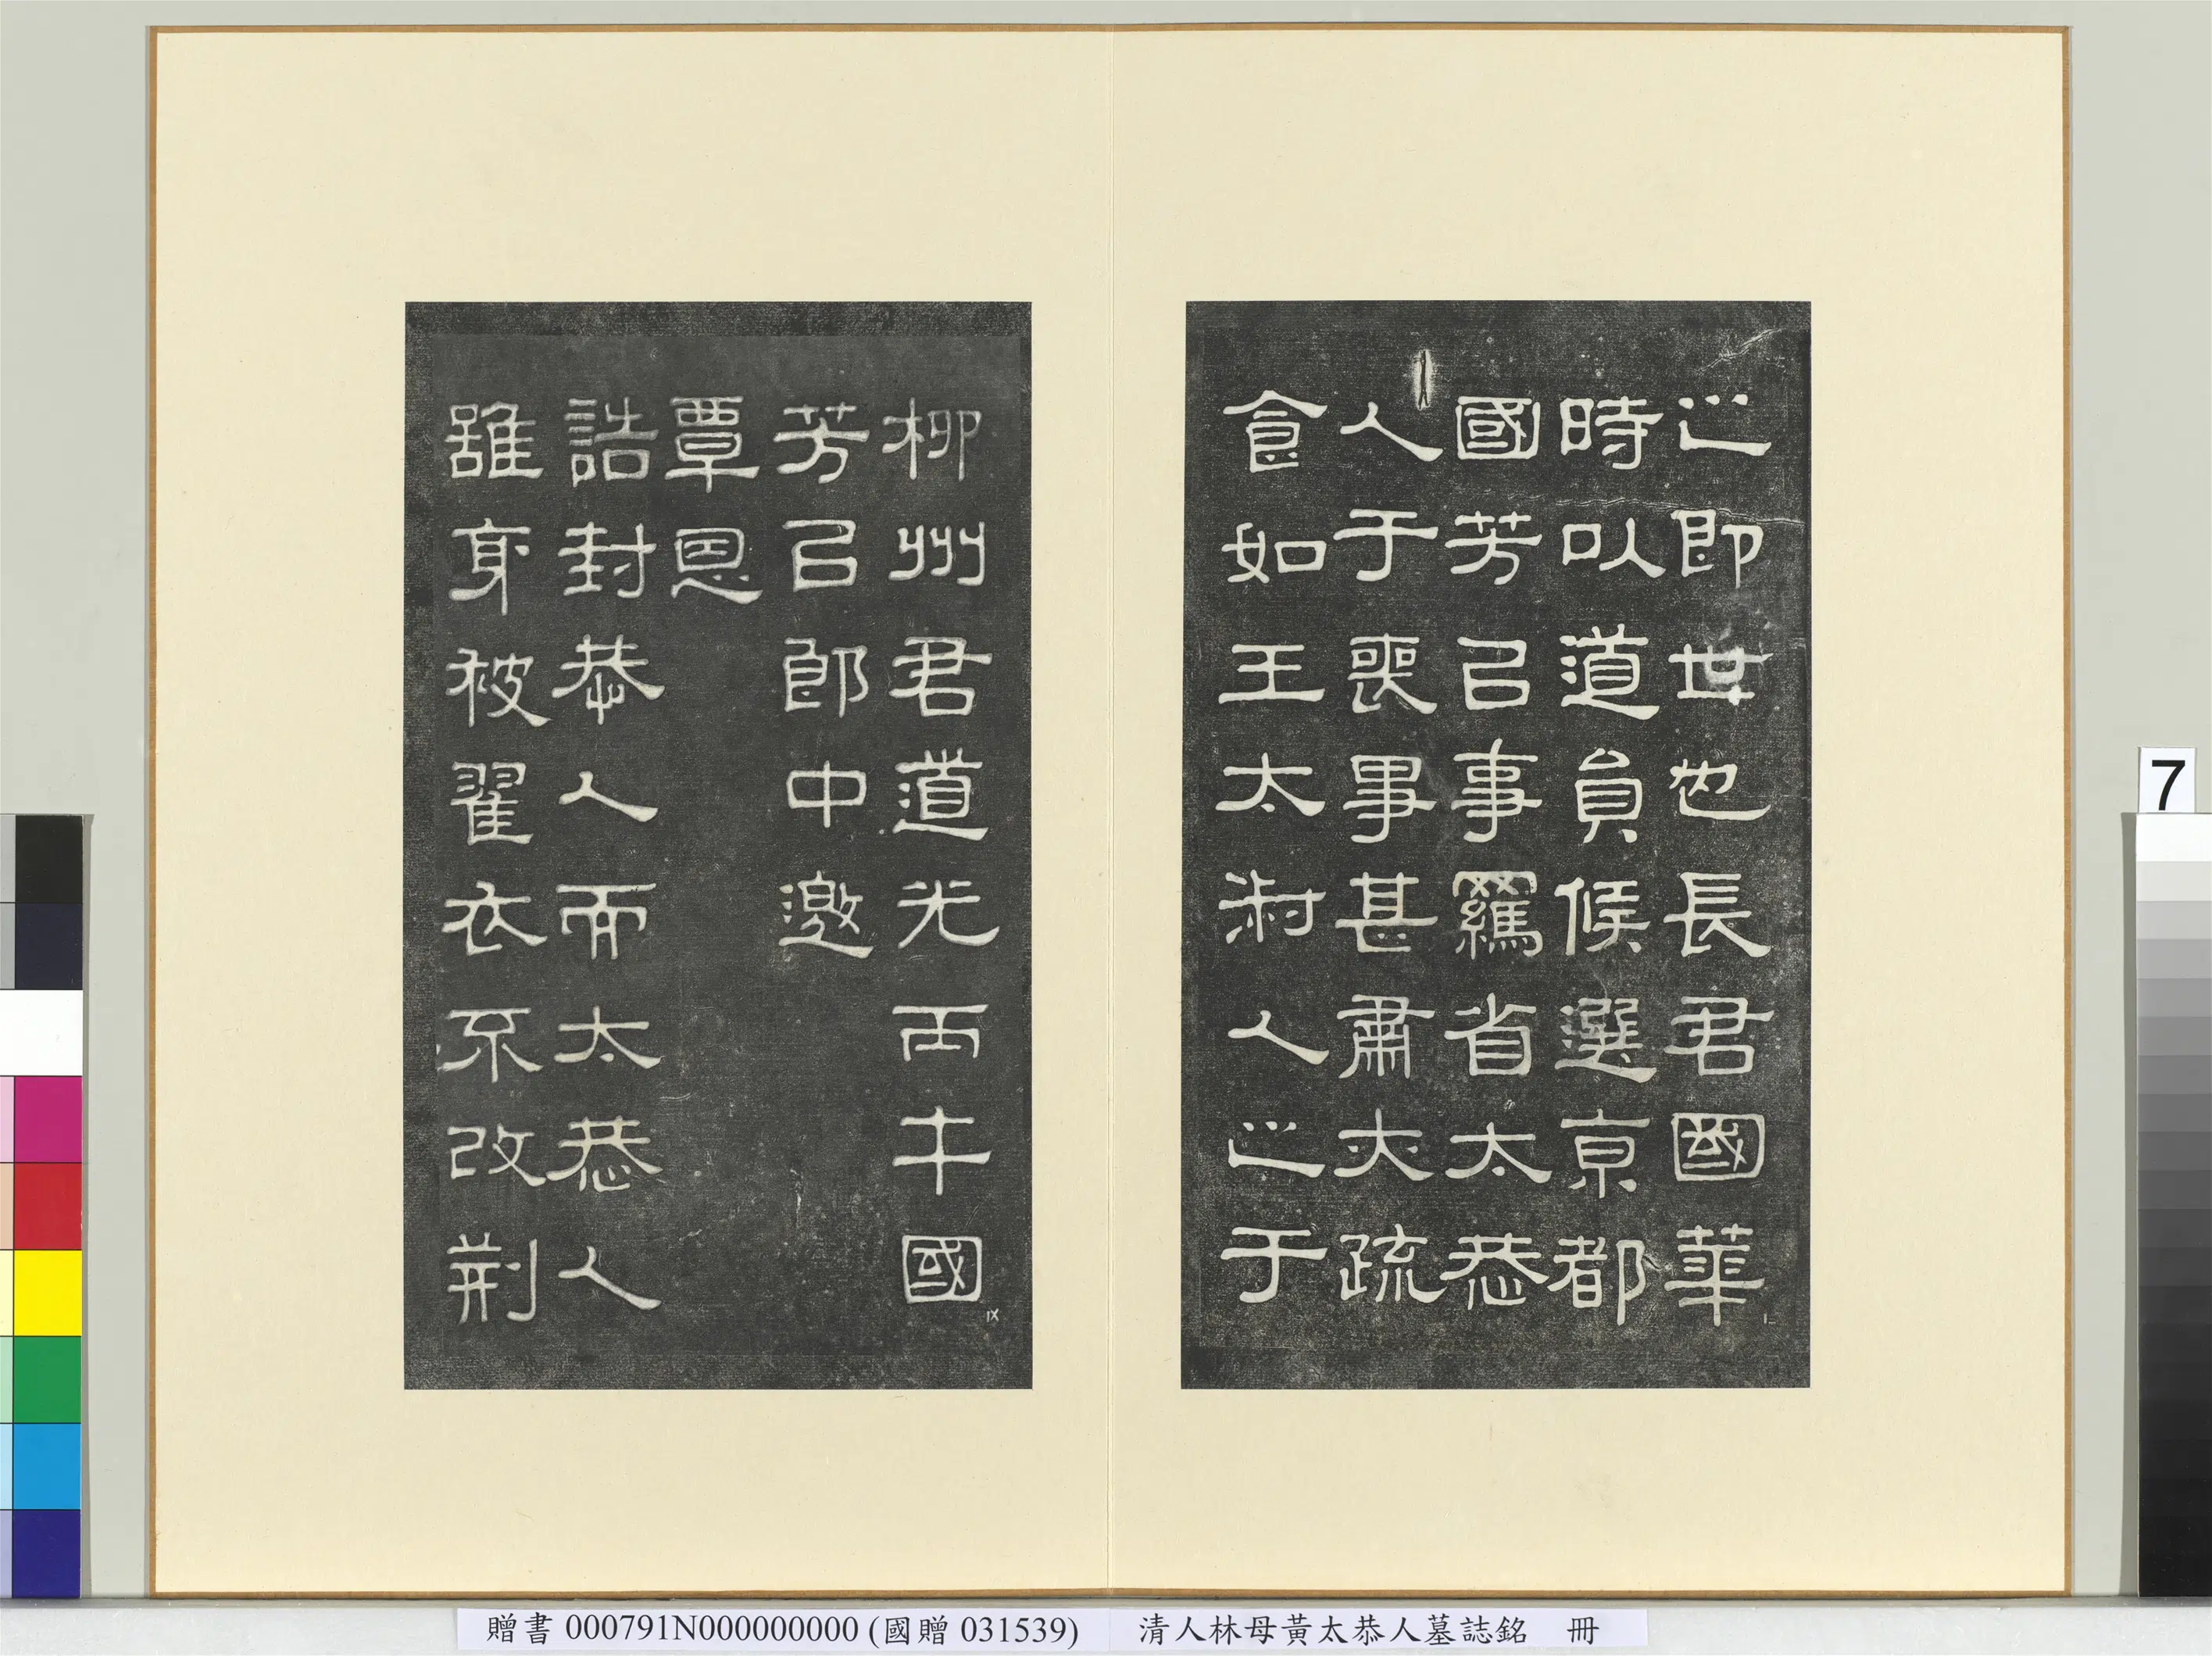 之即世也長君國華
時以道員候選京都
國芳㠯事羈省太恭
人于喪事甚肅大疏
食如王太淑人之于
柳州君道光丙午國
芳㠯郎中邀
覃恩
誥封恭人而太恭人
雖身被翟衣不改荊
7
贈書 000791N000000000 (國贈 031539) 清人林母黃太恭人墓誌銘 冊